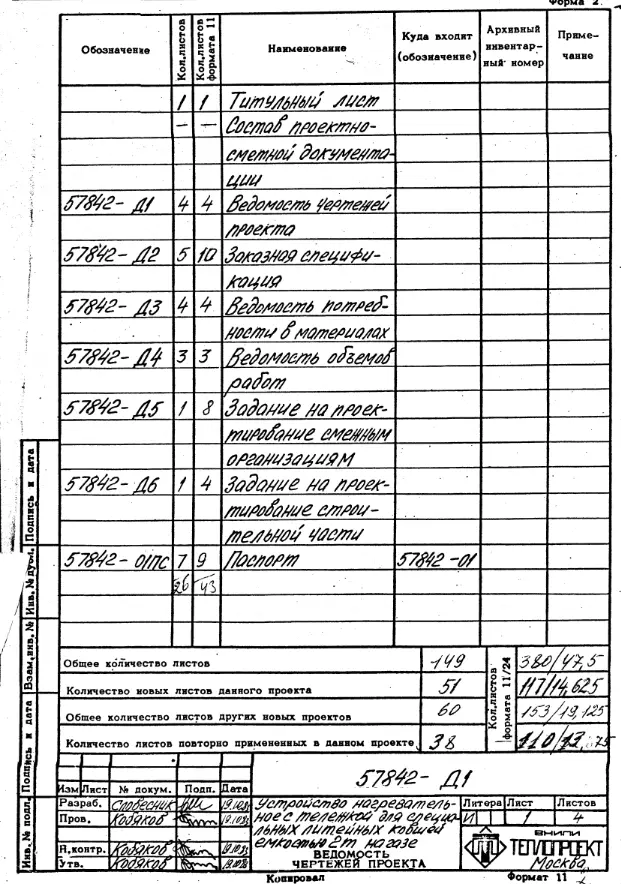 Форма 2.
Обозначение Кол.листов Кол.листов формата 11 Наименование Куда входит (обозначение) Архивный инвентар- ный номер Приме- чание
1 1 Титульный лист
— — Состав проектно-
сметной документа-
ции
57842-Д1 4 4 Ведомость чертежей
проекта
57842-Д2 5 10 Заказная специфи-
кация
57842-Д3 4 4 Ведомость потреб-
ности в материалах
57842-Д4 3 3 Ведомость объемов
работ
57842-Д5 1 8 Задание на проек-
тирование смежным
организациям
57842-Д6 1 4 Задание на проек-
тирование строи-
тельной части
57842-01ПС 7 9 Паспорт 57842-01
26 43
Общее количество листов 149
Количество новых листов данного проекта 51
Общее количество листов других новых проектов 60
Количество листов повторно примененных в данном проекте 38
Кол.листов формата 11/24
380/47,5
117/14,625
153/19,125
110/13,75
57842-Д1
Изм Лист № докум. Подп. Дата
Разраб. Словесник
Пров. Кодяков
Н.контр. Кодяков
Утв. Кодяков
Устройство нагреватель-
ное с тележкой для специа-
льных литейных ковшей
емкостью 2т на газе
ВЕДОМОСТЬ
ЧЕРТЕЖЕЙ ПРОЕКТА
Литера Лист Листов
И 1 4
ВНИПИ
ТЕПЛОПРОЕКТ
Москва
Копировал Формат 11
Инв. № подл. Подпись и дата Взам.инв. № Инв. № дубл. Подпись и дата